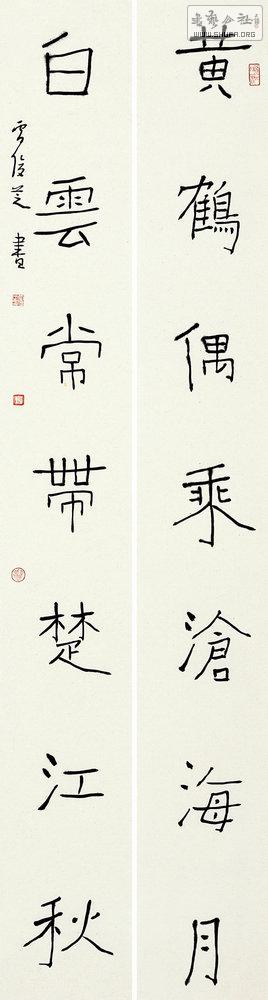 黄鶴偶乘滄海月
白雲常帶楚江秋
書
书艺公社
WWW.SHUFA.ORG